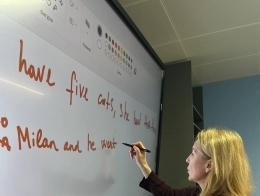 have five cats, she had
Milan and he went